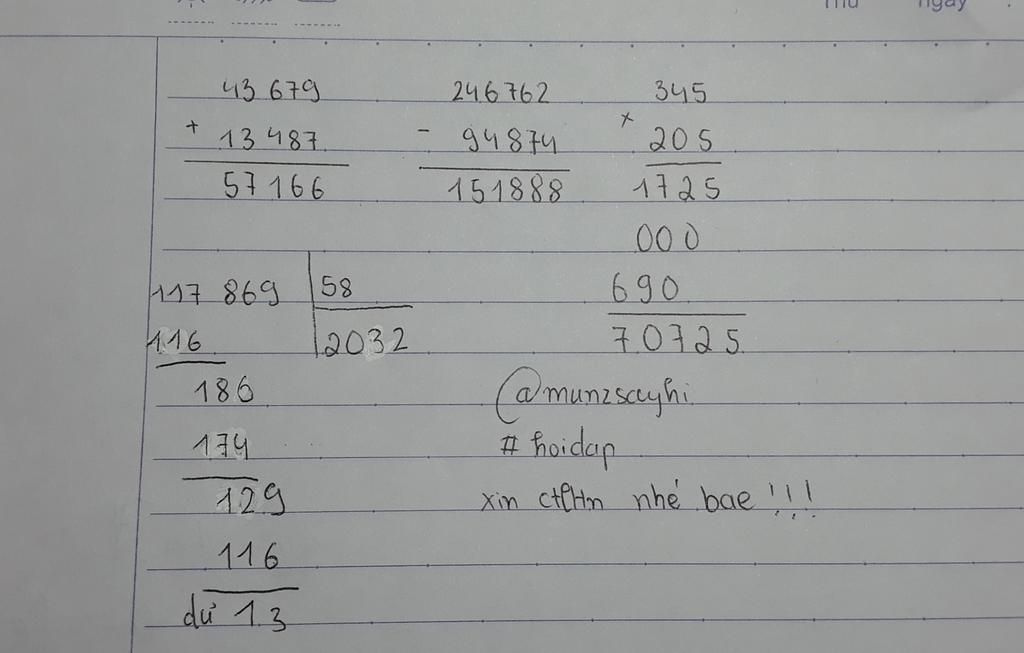 Thứ ngày
43 679 246762 345
+ 13 487 - 94874 x 205
57166 151888 1725
000
117 869 58 690
116 2032 70725
186 @munzscyhi
174 # hoidap
129 xin ctlHn nhé bae !!!
116
dư 13